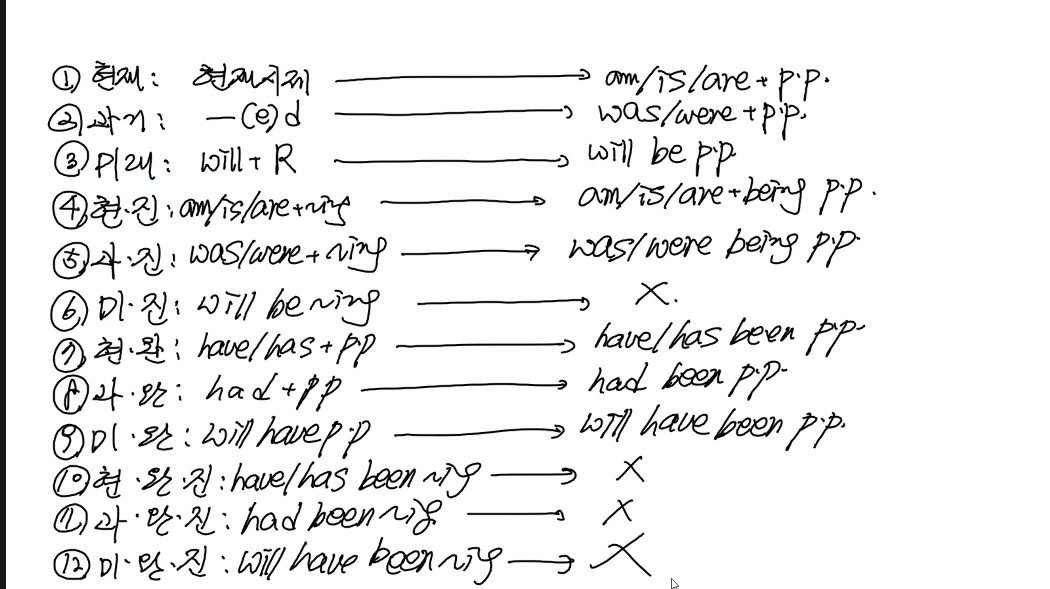 ① 현재: 현재시제 → am/is/are + p.p.
② 과거: —(e)d → was/were + p.p.
③ 미래: will + R → will be p.p.
④ 현·진: am/is/are + ~ing → am/is/are + being p.p.
⑤ 과·진: was/were + ~ing → was/were being p.p.
⑥ 미·진: will be ~ing → X.
⑦ 현·완: have/has + p.p → have/has been p.p.
⑧ 과·완: had + p.p → had been p.p.
⑨ 미·완: will have p.p → will have been p.p.
⑩ 현·완·진: have/has been ~ing → X
⑪ 과·완·진: had been ~ing → X
⑫ 미·완·진: will have been ~ing → X